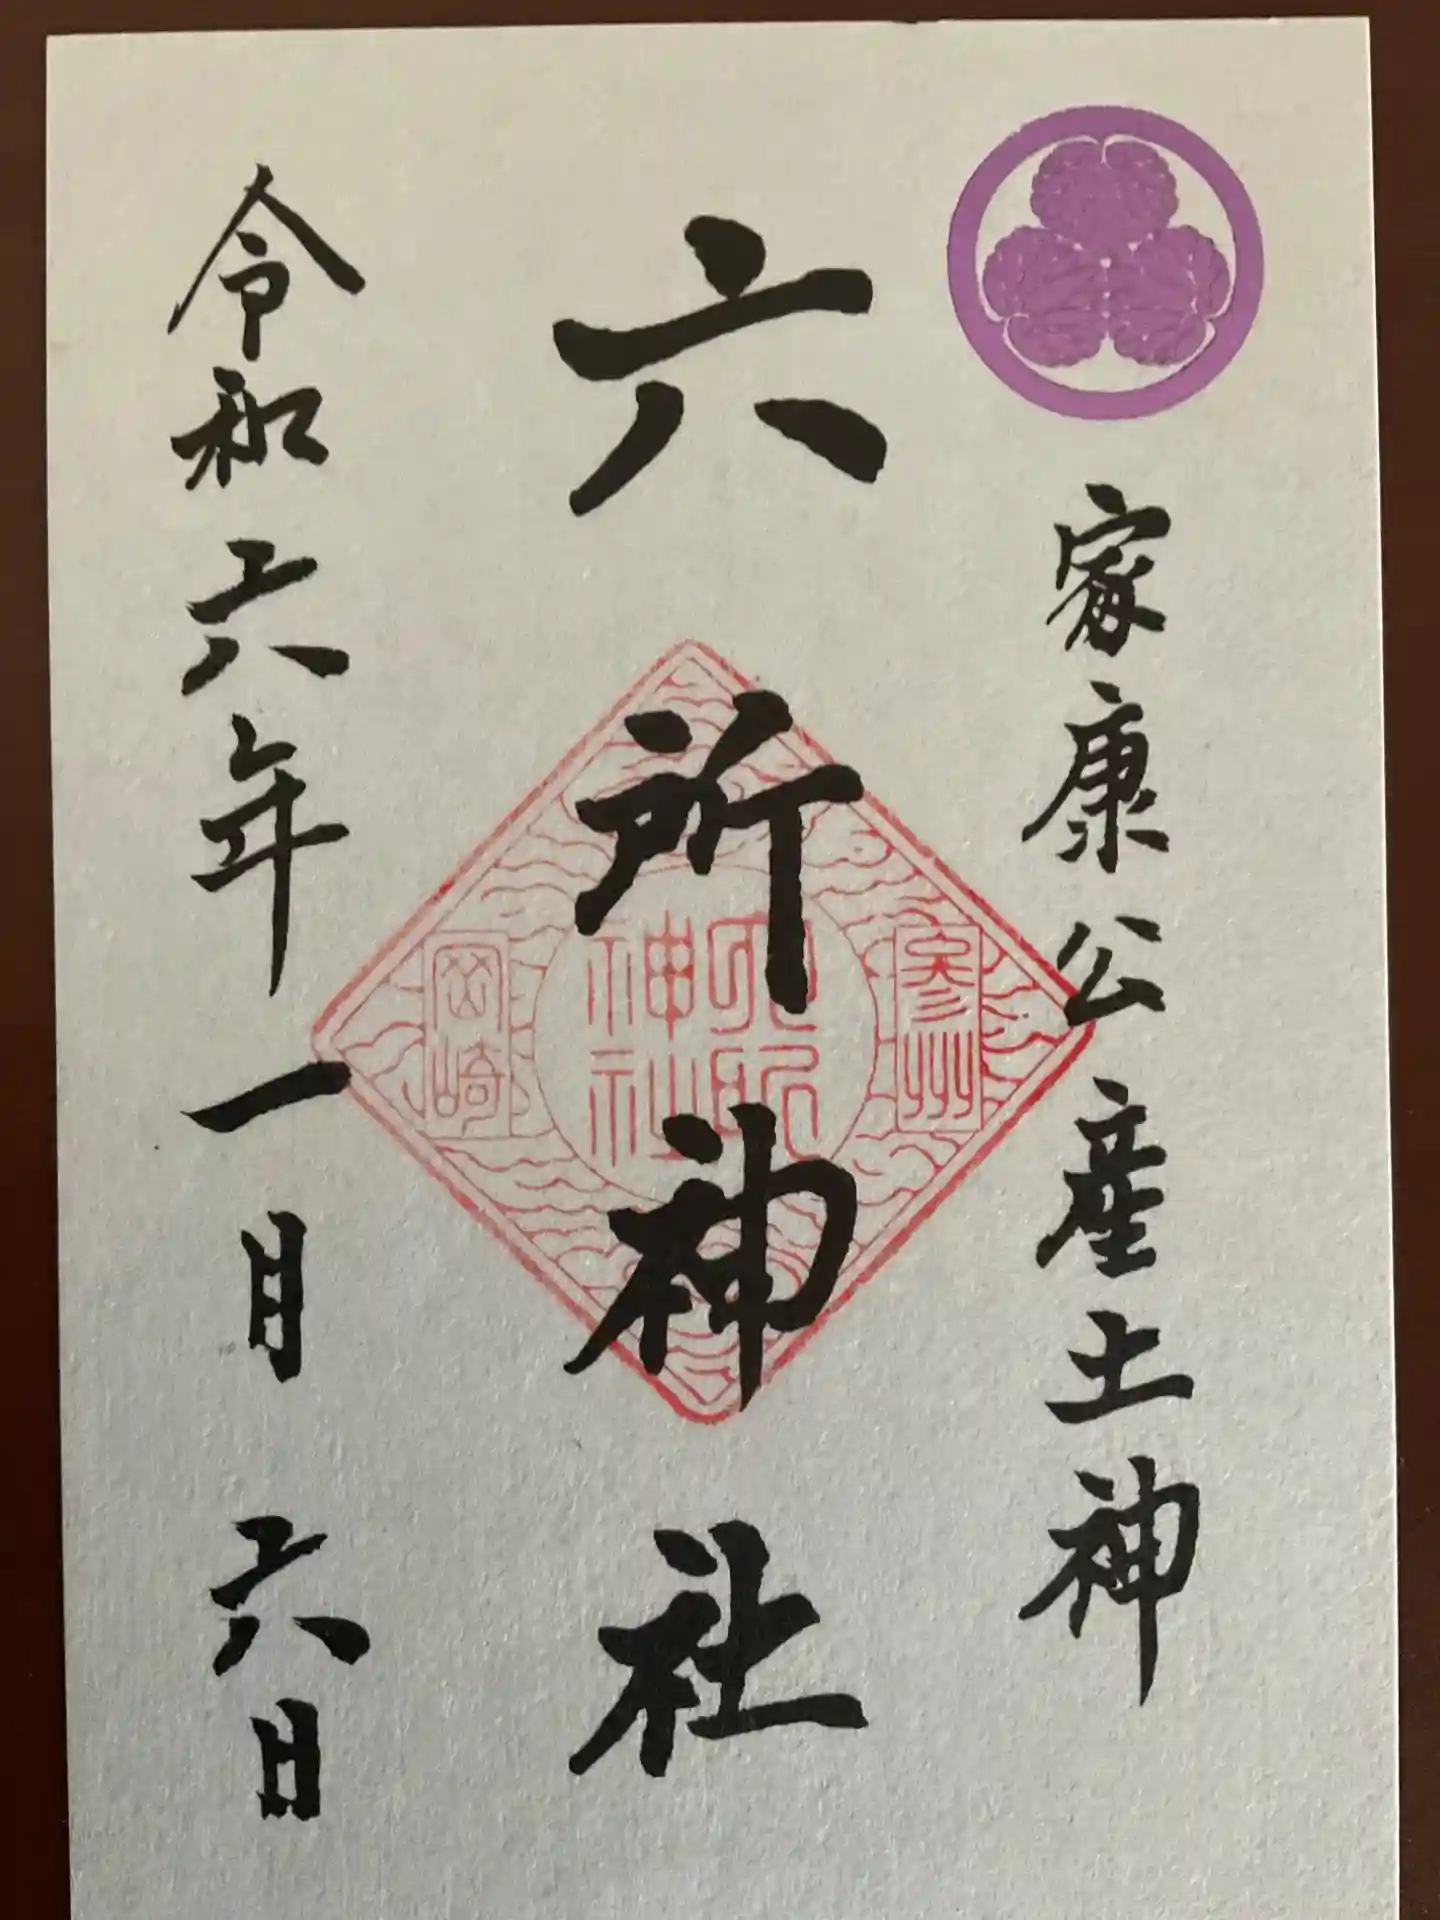 家康公産土神
六所神社
参州
六所
神社
岡崎
令和六年一月六日